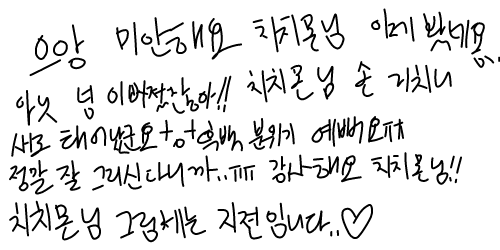 으앙 미안해요 치치몬님 이제 봤네요..
아닛 넘 이뻐졌잖아!! 치치몬님 손 거치니
새로 태어났군요ㅇㅅㅇ 흑백 분위기 예뻐요ㅠㅠ
정말 잘 그리신다니까..ㅠㅠ 감사해요 치치몬님!!
치치몬님 그림체는 지전입니다..♡